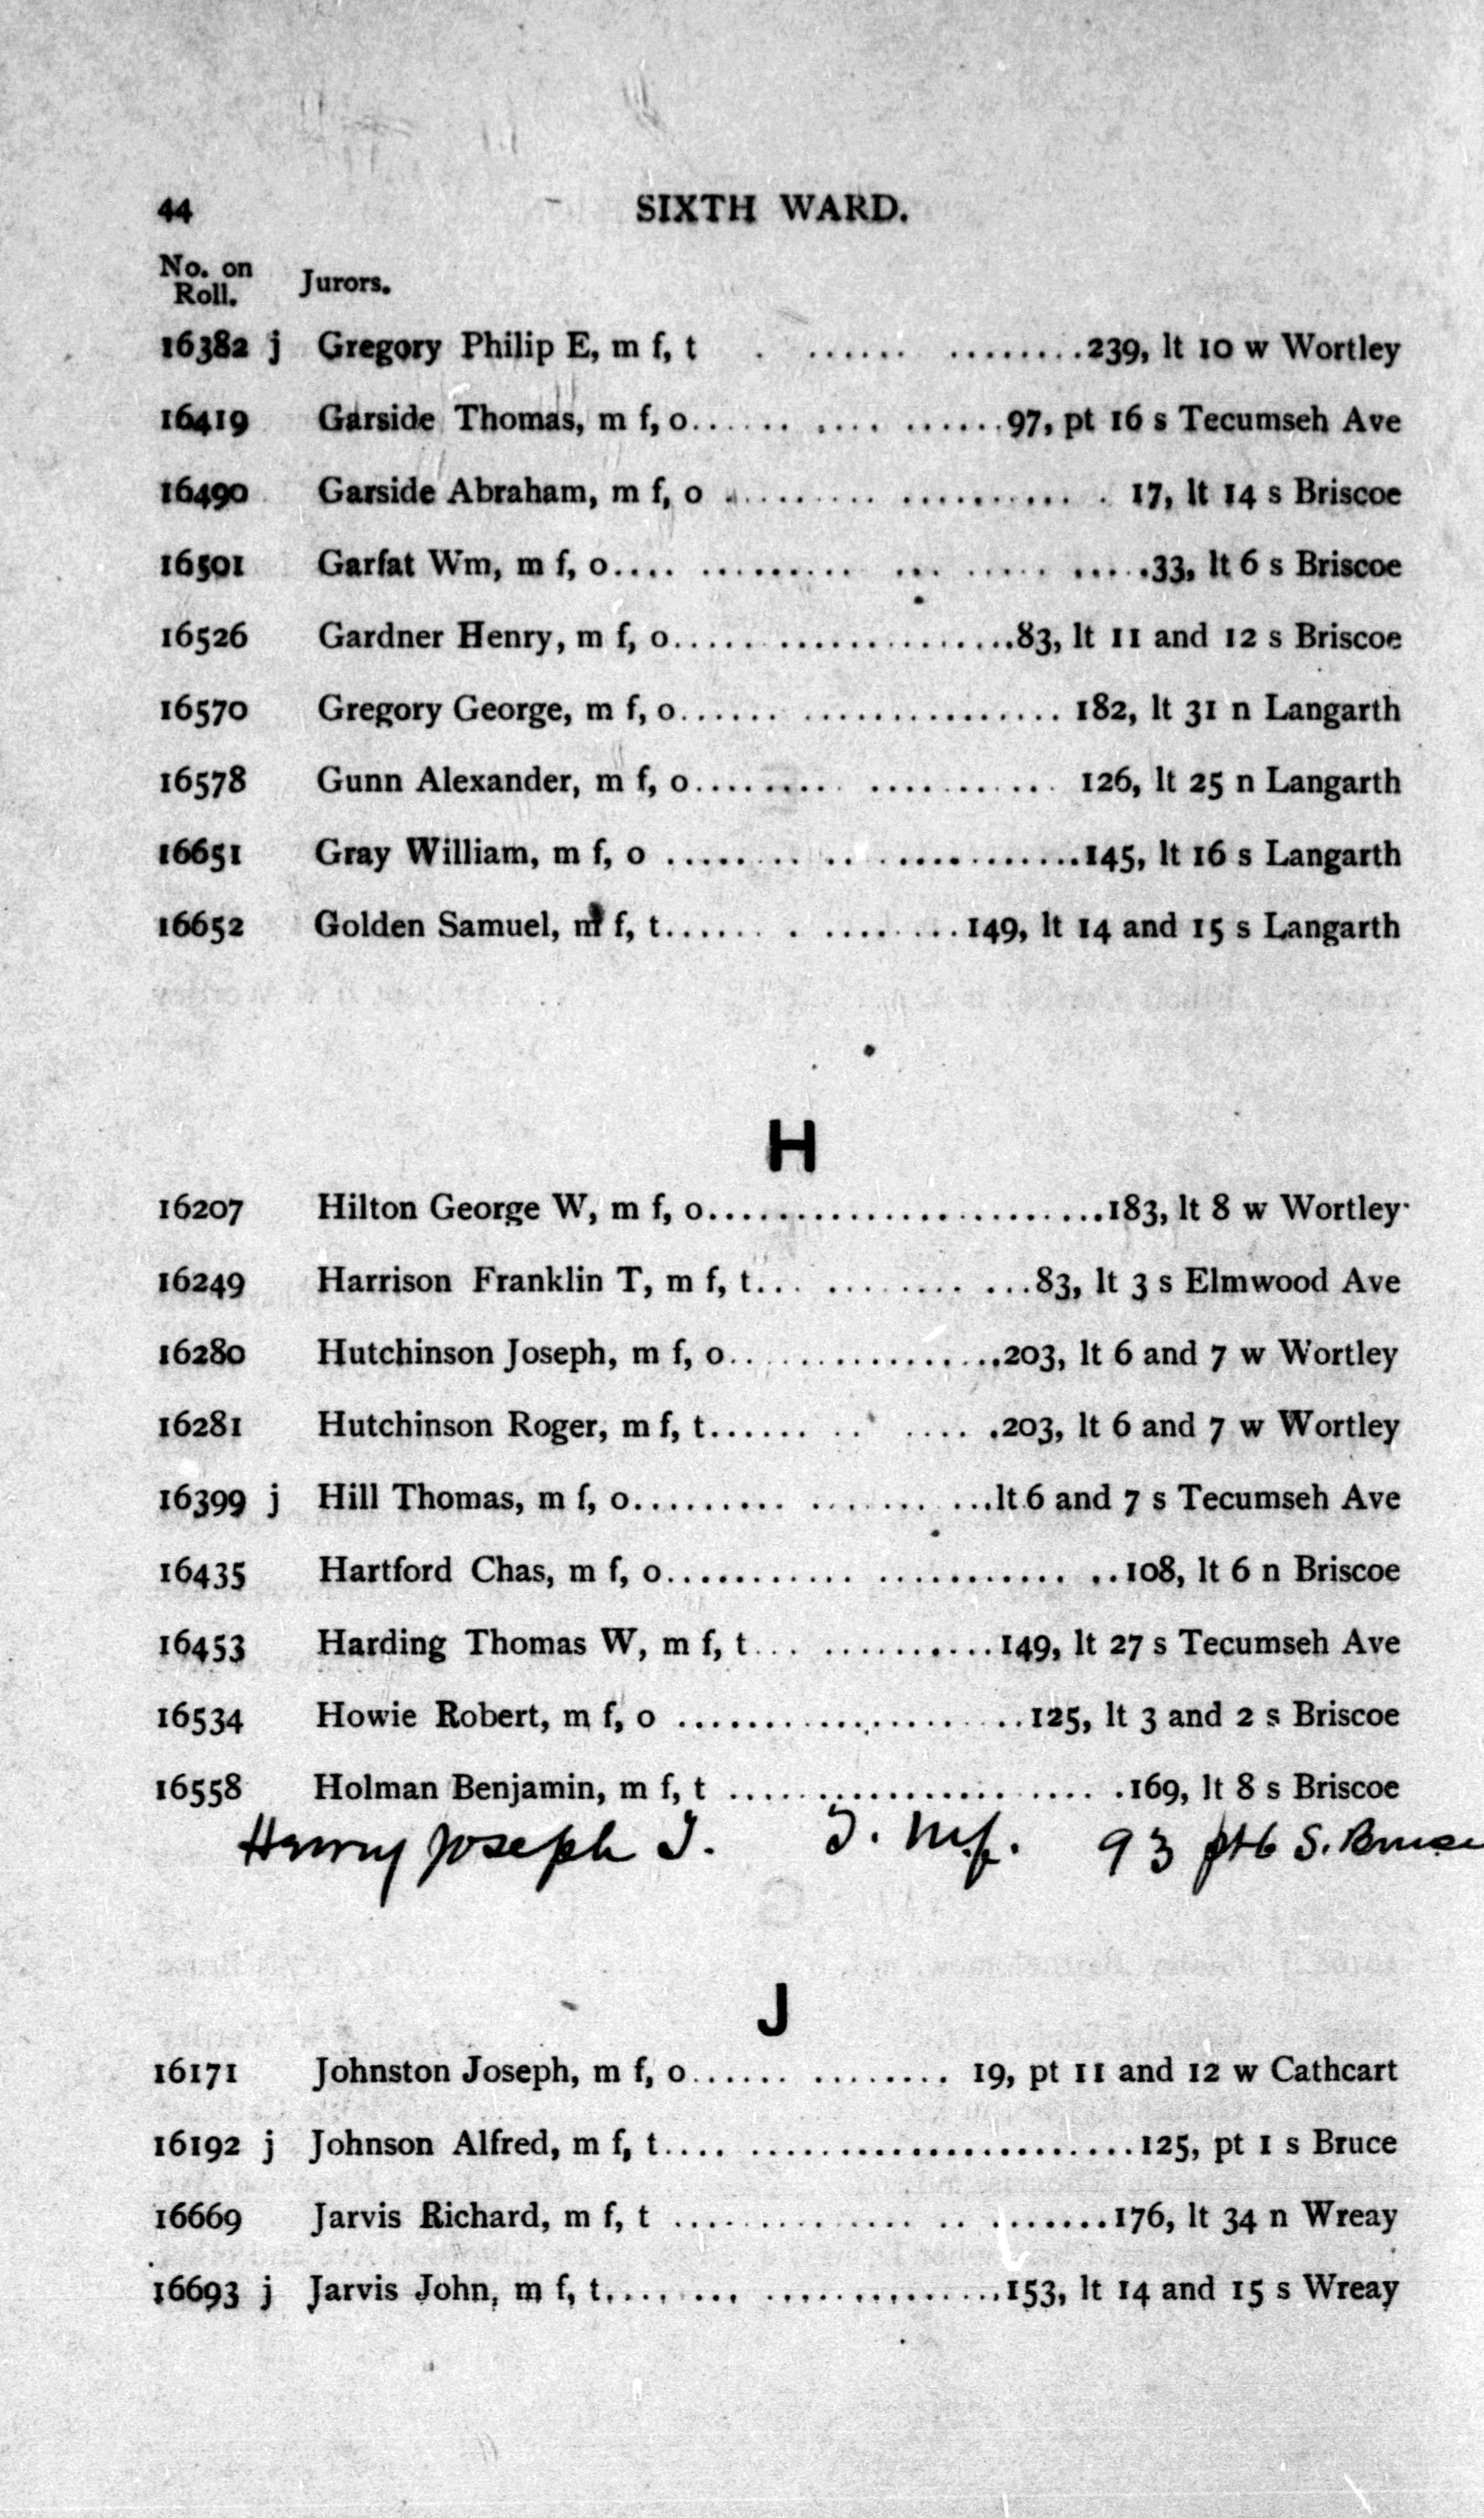 44 SIXTH WARD.
No. on
Roll. Jurors.
16382 j Gregory Philip E, m f, t . ...... ........239, lt 10 w Wortley
16419 Garside Thomas, m f, o...... .... ......97, pt 16 s Tecumseh Ave
16490 Garside Abraham, m f, o .......... .......... . 17, lt 14 s Briscoe
16501 Garfat Wm, m f, o.... ......... ... ..... .....33, lt 6 s Briscoe
16526 Gardner Henry, m f, o.....................83, lt 11 and 12 s Briscoe
16570 Gregory George, m f, o...... ............... 182, lt 31 n Langarth
16578 Gunn Alexander, m f, o......... ........... 126, lt 25 n Langarth
16651 Gray William, m f, o ........ .. ...........145, lt 16 s Langarth
16652 Golden Samuel, m f, t...... . ........149, lt 14 and 15 s Langarth
H
16207 Hilton George W, m f, o........................183, lt 8 w Wortley
16249 Harrison Franklin T, m f, t... ........ ...83, lt 3 s Elmwood Ave
16280 Hutchinson Joseph, m f, o.................203, lt 6 and 7 w Wortley
16281 Hutchinson Roger, m f, t...... .. .... .203, lt 6 and 7 w Wortley
16399 j Hill Thomas, m f, o......... ....... ...lt 6 and 7 s Tecumseh Ave
16435 Hartford Chas, m f, o........... ........... ..108, lt 6 n Briscoe
16453 Harding Thomas W, m f, t... ..........149, lt 27 s Tecumseh Ave
16534 Howie Robert, m f, o .....................125, lt 3 and 2 s Briscoe
16558 Holman Benjamin, m f, t ................ .... .169, lt 8 s Briscoe
Joseph T. T. M.f. 93 pt 6 S. Bruce
J
16171 Johnston Joseph, m f, o...... ........ 19, pt 11 and 12 w Cathcart
16192 j Johnson Alfred, m f, t.... .......................125, pt 1 s Bruce
16669 Jarvis Richard, m f, t .............. .. .......176, lt 34 n Wreay
16693 j Jarvis John, m f, t.... ... ..............153, lt 14 and 15 s Wreay